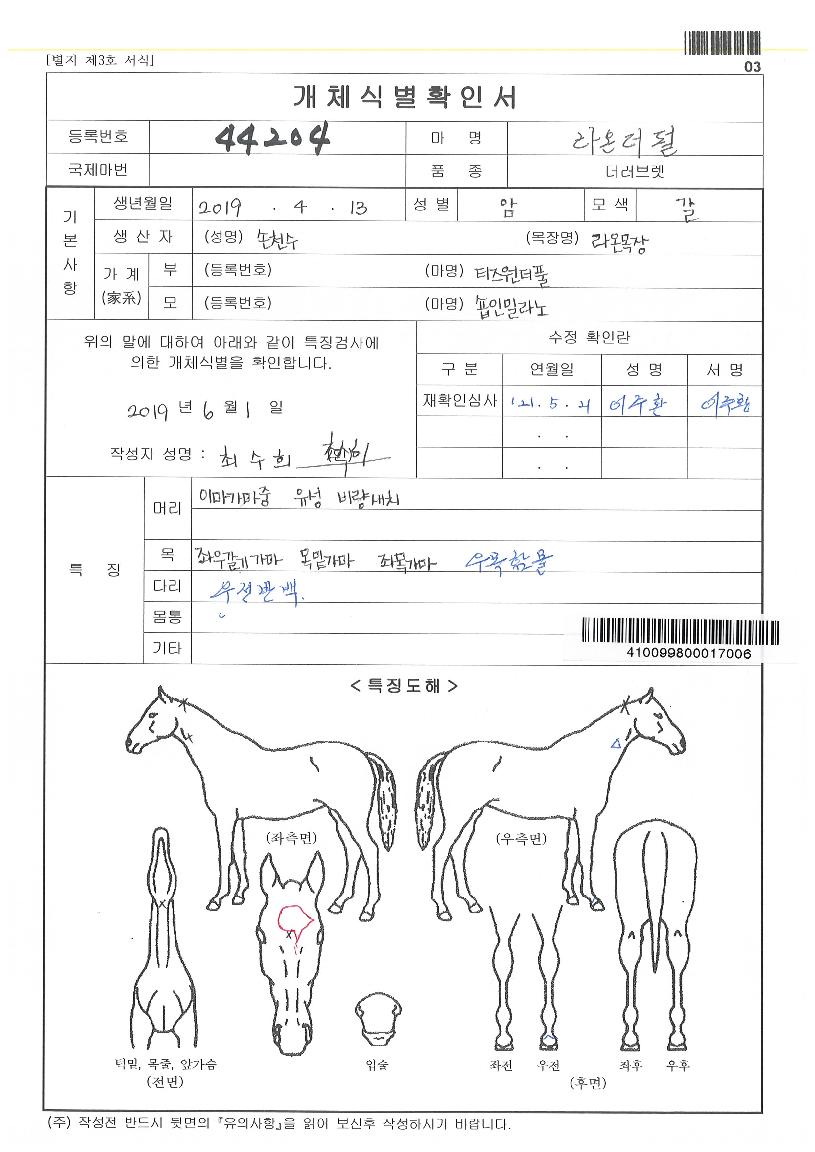 [별지 제3호 서식]
03
개체식별확인서
등록번호 44204 마 명 라온더펄
국제마번 품 종 더러브렛
기본사항
생년월일 2019 . 4 . 13 성 별 암 모 색 갈
생 산 자 (성명) 손천수 (목장명) 라온목장
가 계 (家系) 부 (등록번호) (마명) 티즈원더풀
모 (등록번호) (마명) 숍인밀라노
위의 말에 대하여 아래와 같이 특징검사에
의한 개체식별을 확인합니다.
2019 년 6 월 1 일
작성자 성명 : 최수희
수정 확인란
구 분 연월일 성 명 서 명
재확인심사 '21. 5 . 21 이주환 이주환
. .
. .
특 징
머리 이마가마중 유성 비량새치
목 좌우갈기가마 목밑가마 좌목가마 우목함몰
다리 우전반백.
몸통
기타
410099800017006
< 특징도해 >
(좌측면) (우측면)
턱밑, 목줄, 앞가슴
(전면)
입술
좌전 우전 좌후 우후
(후면)
(주) 작성전 반드시 뒷면의 『유의사항』을 읽어 보신후 작성하시기 바랍니다.